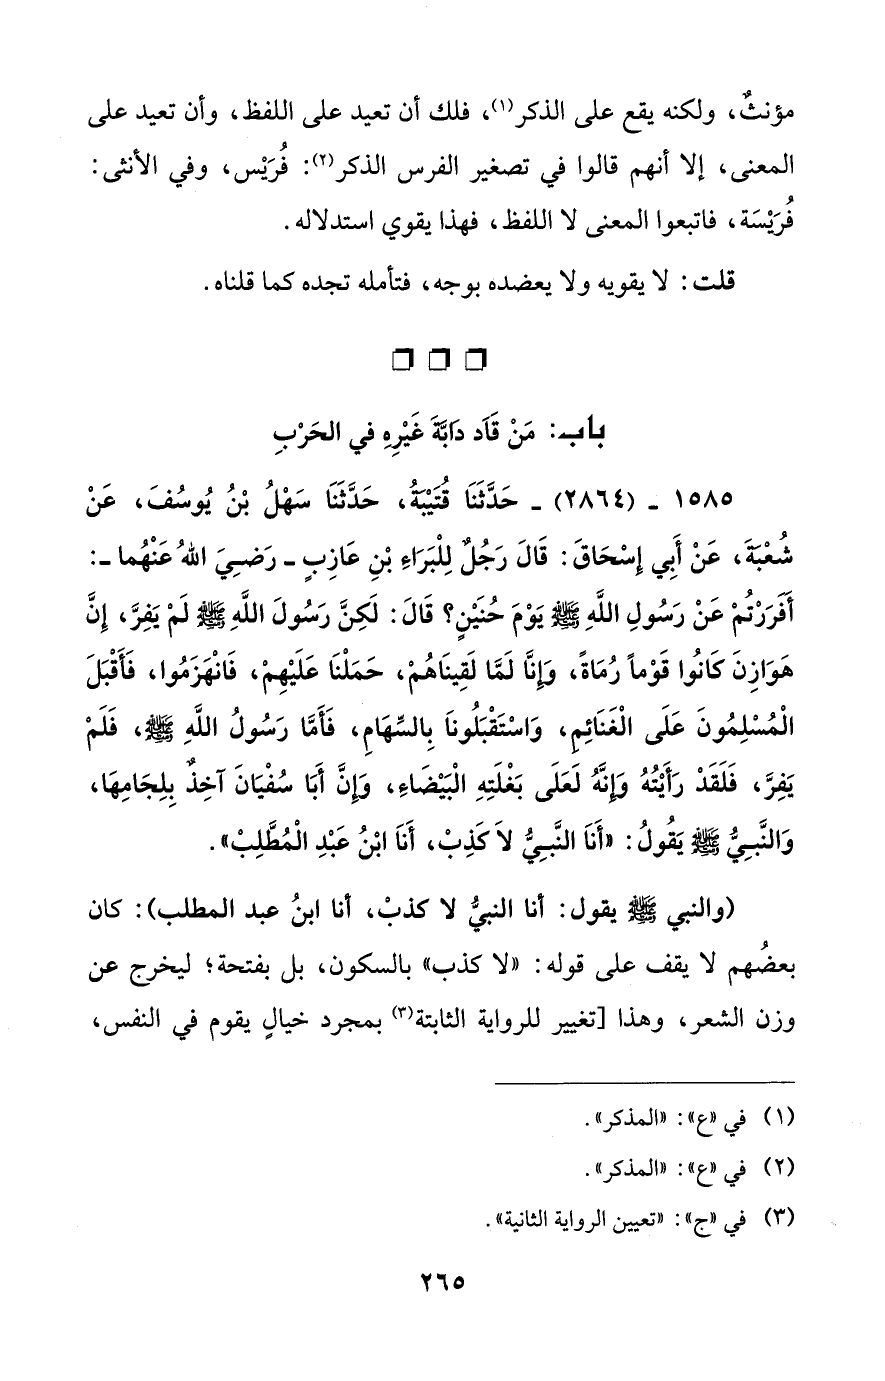 مؤنثٌ، ولكنه يقع على الذكر(١)، فلك أن تعيد على اللفظ، وأن تعيد على
المعنى، إلا أنهم قالوا في تصغير الفرس الذكر(٢): فُرَيْس، وفي الأنثى:
فُرَيْسَة، فاتبعوا المعنى لا اللفظ، فهذا يقوي استدلاله.
قلت: لا يقويه ولا يعضده بوجه، فتأمله تجده كما قلناه.
باب: مَنْ قَاد دَابَّةَ غَيْرِهِ في الحَرْبِ
١٥٨٥ ـ (٢٨٦٤) ـ حَدَّثَنَا قُتَيْبَةُ، حَدَّثَنَا سَهْلُ بْنُ يُوسُفَ، عَنْ
شُعْبَةَ، عَنْ أَبِي إِسْحَاقَ: قَالَ رَجُلٌ لِلْبَرَاءِ بْنِ عَازِبٍ ـ رَضيَ اللهُ عَنْهُما ـ:
أَفَرَرْتُمْ عَنْ رَسُولِ اللَّهِ ﷺ يَوْمَ حُنَيْنٍ؟ قَالَ: لَكِنَّ رَسُولَ اللَّهِ ﷺ لَمْ يَفِرَّ، إِنَّ
هَوَازِنَ كَانُوا قَوْماً رُمَاةً، وَإِنَّا لَمَّا لَقِينَاهُمْ، حَمَلْنَا عَلَيْهِمْ، فَانْهَزَمُوا، فَأَقْبَلَ
الْمُسْلِمُونَ عَلَى الْغَنَائِمِ، وَاسْتَقْبَلُونَا بِالسِّهَامِ، فَأَمَّا رَسُولُ اللَّهِ ﷺ، فَلَمْ
يَفِرَّ، فَلَقَدْ رَأَيْتُهُ وَإِنَّهُ لَعَلَى بَغْلَتِهِ الْبَيْضَاءِ، وَإِنَّ أَبَا سُفْيَانَ آخِذٌ بِلِجَامِهَا،
وَالنَّبِيُّ ﷺ يَقُولُ: «أَنَا النَّبِيُّ لاَ كَذِبْ، أَنَا ابْنُ عَبْدِ الْمُطَّلِبْ».
(والنبي ﷺ يقول: أنا النبيُّ لا كذبْ، أنا ابنُ عبد المطلب): كان
بعضُهم لا يقف على قوله: «لا كذب» بالسكون، بل بفتحة؛ ليخرج عن
وزن الشعر، وهذا [تغيير للرواية الثابتة(٣) بمجرد خيالٍ يقوم في النفس،
(١) في «ع»: «المذكر».
(٢) في «ع»: «المذكر».
(٣) في «ج»: «تعيين الرواية الثانية».
٢٦٥